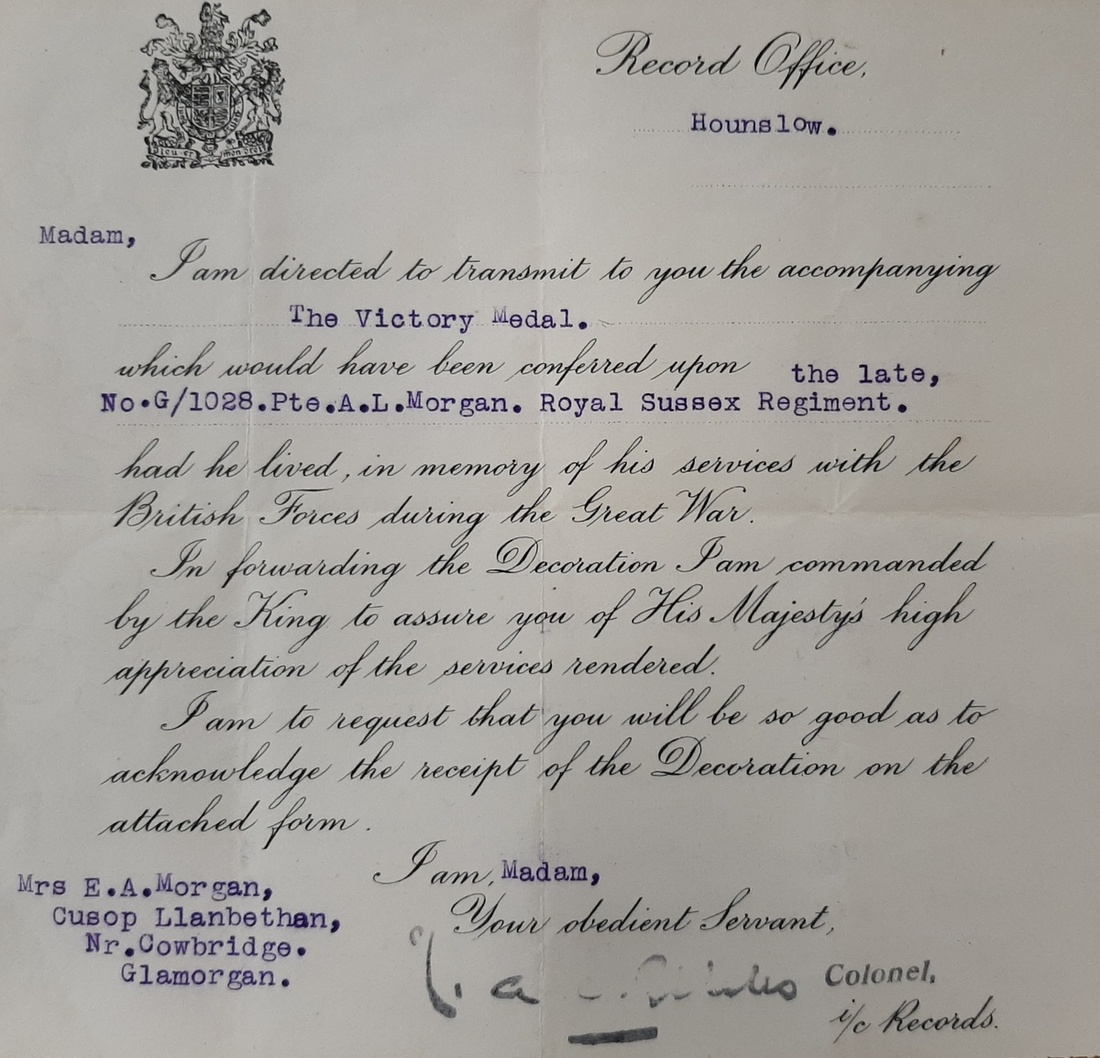 Record Office,
Hounslow.
Dieu et mon droit
Madam,
I am directed to transmit to you the accompanying
The Victory Medal.
which would have been conferred upon the late,
No.G/1028.Pte.A.L.Morgan. Royal Sussex Regiment.
had he lived, in memory of his services with the
British Forces during the Great War.
In forwarding the Decoration I am commanded
by the King to assure you of His Majesty's high
appreciation of the services rendered.
I am to request that you will be so good as to
acknowledge the receipt of the Decoration on the
attached form.
I am, Madam,
Your obedient Servant,
Colonel,
i/c Records.
Mrs E.A.Morgan,
Cusop Llanbethan,
Nr.Cowbridge.
Glamorgan.